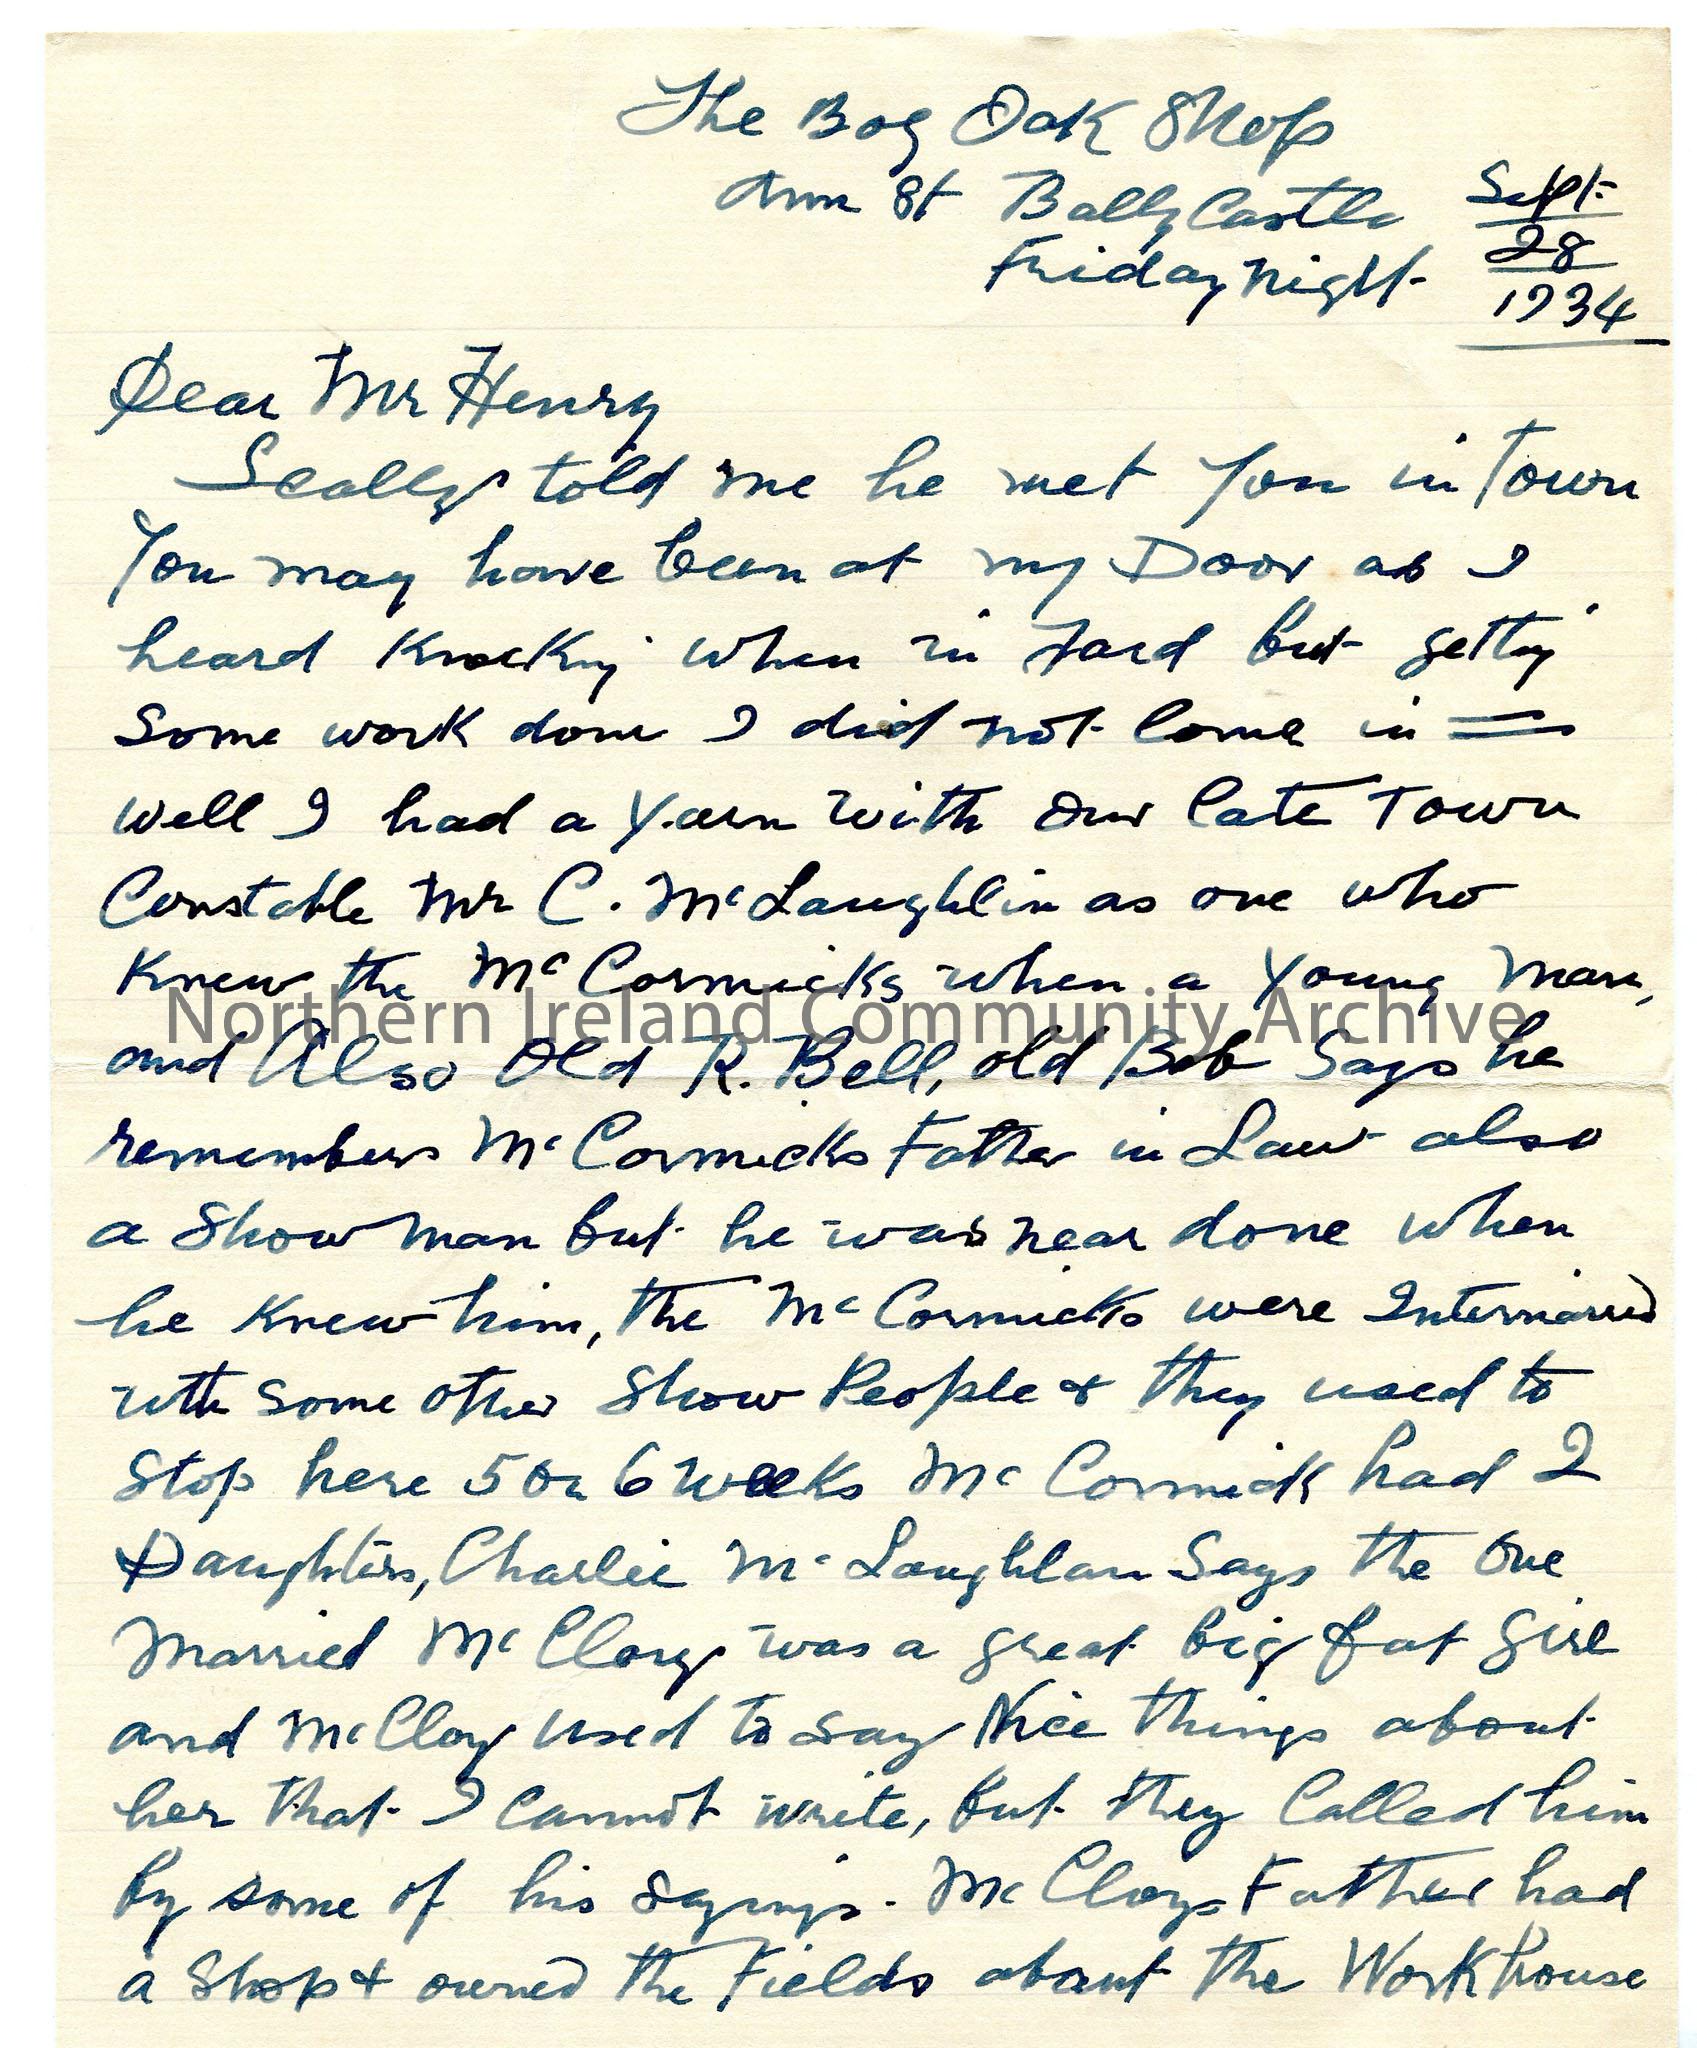 The Bog Oak Shop
Ann St Ballycastle
Friday night
Sept.
28
1934
Dear Mr Henry
Scally told me he met you in Town
You may have been at my Door as I
heard Knocking when in Yard but getting
Some work done I did not Come in =
well I had a Yarn with Our late Town
Constable Mr C. McLaughlin as one who
Knew the McCormicks when a Young man,
Northern Ireland Community Archive
and Also Old R. Bell, old Bob Says he
remembers McCormicks Father in Law also
a Show man but he was near done when
he Knew him, the McCormicks were Intermarried
with Some other Show People & they used to
Stop here 5 or 6 weeks McCormick had 2
Daughters, Charlie McLaughlan Says the One
Married McCloy was a great big fat girl
and McCloy used to say Nice things about
her that I cannot write, but they Called him
by some of his sayings. McCloys Father had
a Shop & owned the Fields about the Workhouse